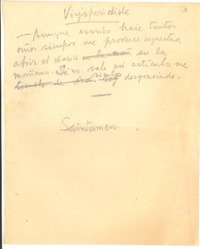 Viejo periodista
— Aunque escribo hace tantos
años siempre me produce inquietud
abrir el diario en la
mañana. no sale mi artículo me
siento desgraciado.
Santamon